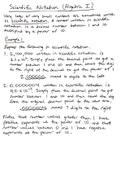 Scientific Notation (Algebra I)
Very large or very small numbers are sometimes written
in scientific notation. A number written in scientific
notation is a decimal number between 1 and 10
multiplied by a power of 10.
Example 1
Express the following in scientific notation.
1.
in scientific notation is
Simply place the decimal point to get a
number between 1 and 10 and then count the digits
to the right of the decimal to get the power of 10.
moved 6 digits to the left
2. in scientific notation is
Simply place the decimal point to get a
number between 1 and 10 and then count the digits
from the original decimal point to the new one.
moved 7 digits to the right
Notice that number values greater than 1 have
positive exponents as the power of 10 and that
number values between 0 and 1 have negative
exponents as the power of 10.